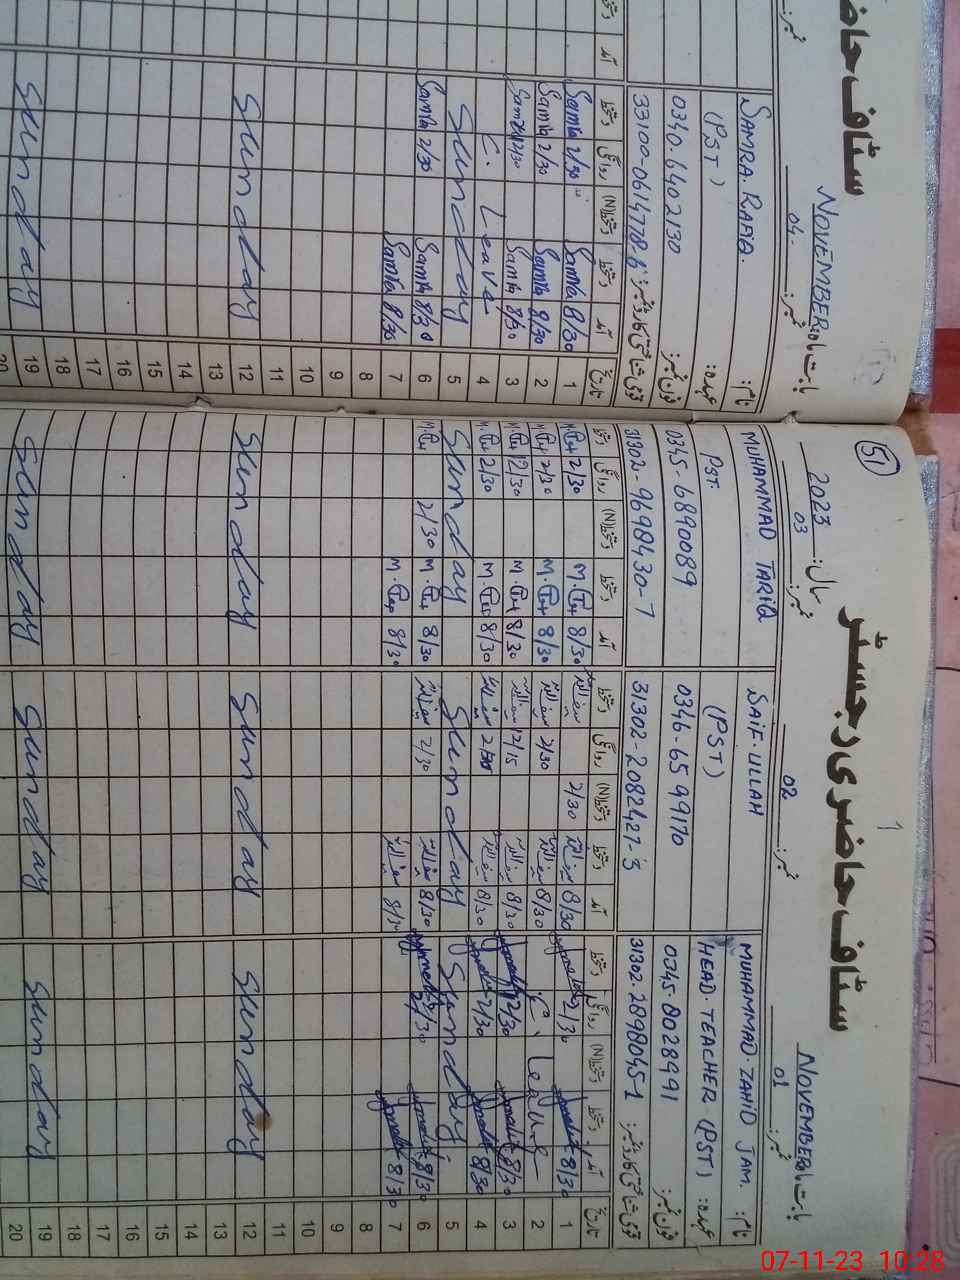 سٹاف حاضری رجسٹر
51
2023 سال:
NOVEMBER بابت ماہ
01 نمبر:
نام: MUHAMMAD. ZAHID JAM.
عہدہ: HEAD. TEACHER (PST)
فون نمبر: 0345-8028991
قومی شناختی کارڈ نمبر: 31302-2898045-1
02 نمبر:
SAIF-ULLAH
(PST)
0346-6599170
31302-2082427-3
03 نمبر:
MUHAMMAD TARIQ
PST.
0345-6890089
31302-9698430-7
تاریخ آمد دستخط دستخط(N) روانگی دستخط آمد دستخط دستخط(N) روانگی دستخط آمد دستخط دستخط(N) روانگی دستخط
1 8/30 2/30 8/30 2/30 8/30 2/30
2 C. Leave 8/30 2/30 8/30 2/30
3 8/30 12/30 8/30 12/15 8/30 12/30
4 8/30 2/30 8/30 2/30 8/30 2/30
5 Sunday Sunday Sunday
6 8/30 2/30 8/30 2/30 8/30 2/30
7 8/30 8/30 8/30
8
9
10
11
12 Sunday Sunday Sunday
13
14
15
16
17
18
19 Sunday Sunday Sunday
20
سٹاف حاضری
NOVEMBER بابت ماہ
04- نمبر:
نام: SAMRA. RAFIQ.
عہدہ: (PST)
فون نمبر: 0340-6402130
قومی شناختی کارڈ نمبر: 33100-0614778-6
تاریخ آمد دستخط دستخط(N) روانگی دستخط آمد دستخط
1 8/30 Samra 2/30 Samra
2 8/30 Samra 2/30 Samra
3 8/30 Samra 12/30 Samra
4 C. Leave
5 Sunday
6 8/30 Samra 2/30 Samra
7 8/30 Samra
8
9
10
11
12 Sunday
13
14
15
16
17
18
19 Sunday
20
07-11-23 10:28